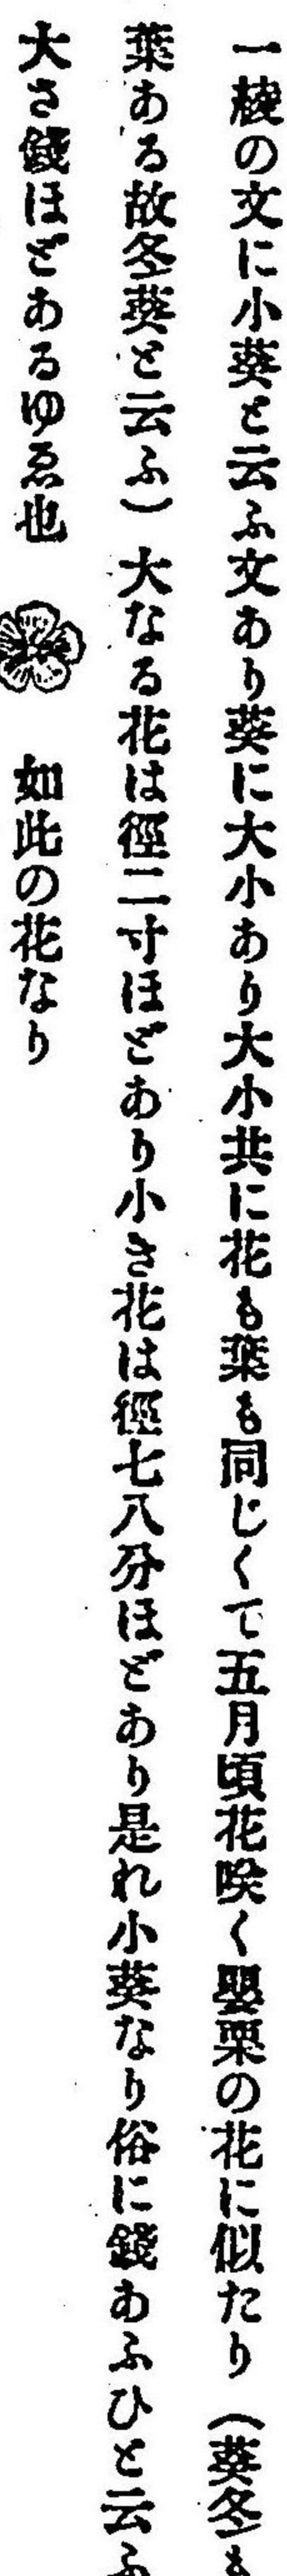 一綾の文に小葵と云ふ文あり葵に大小あり大小共に花も葉も同じくて五月頃花咲く罌粟の花に似たり（葵冬も
葉ある故冬葵と云ふ）大なる花は徑二寸ほどあり小き花は徑七八分ほどあり是れ小葵なり俗に錢あふひと云ふ
大さ錢ほどあるゆゑ也　如此の花なり